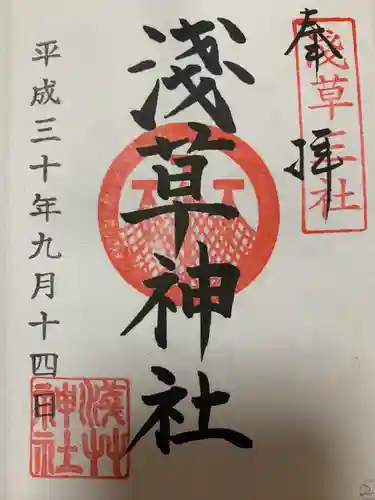 奉拝
淺草三社
淺草神社
平成三十年九月十四日
淺草神社